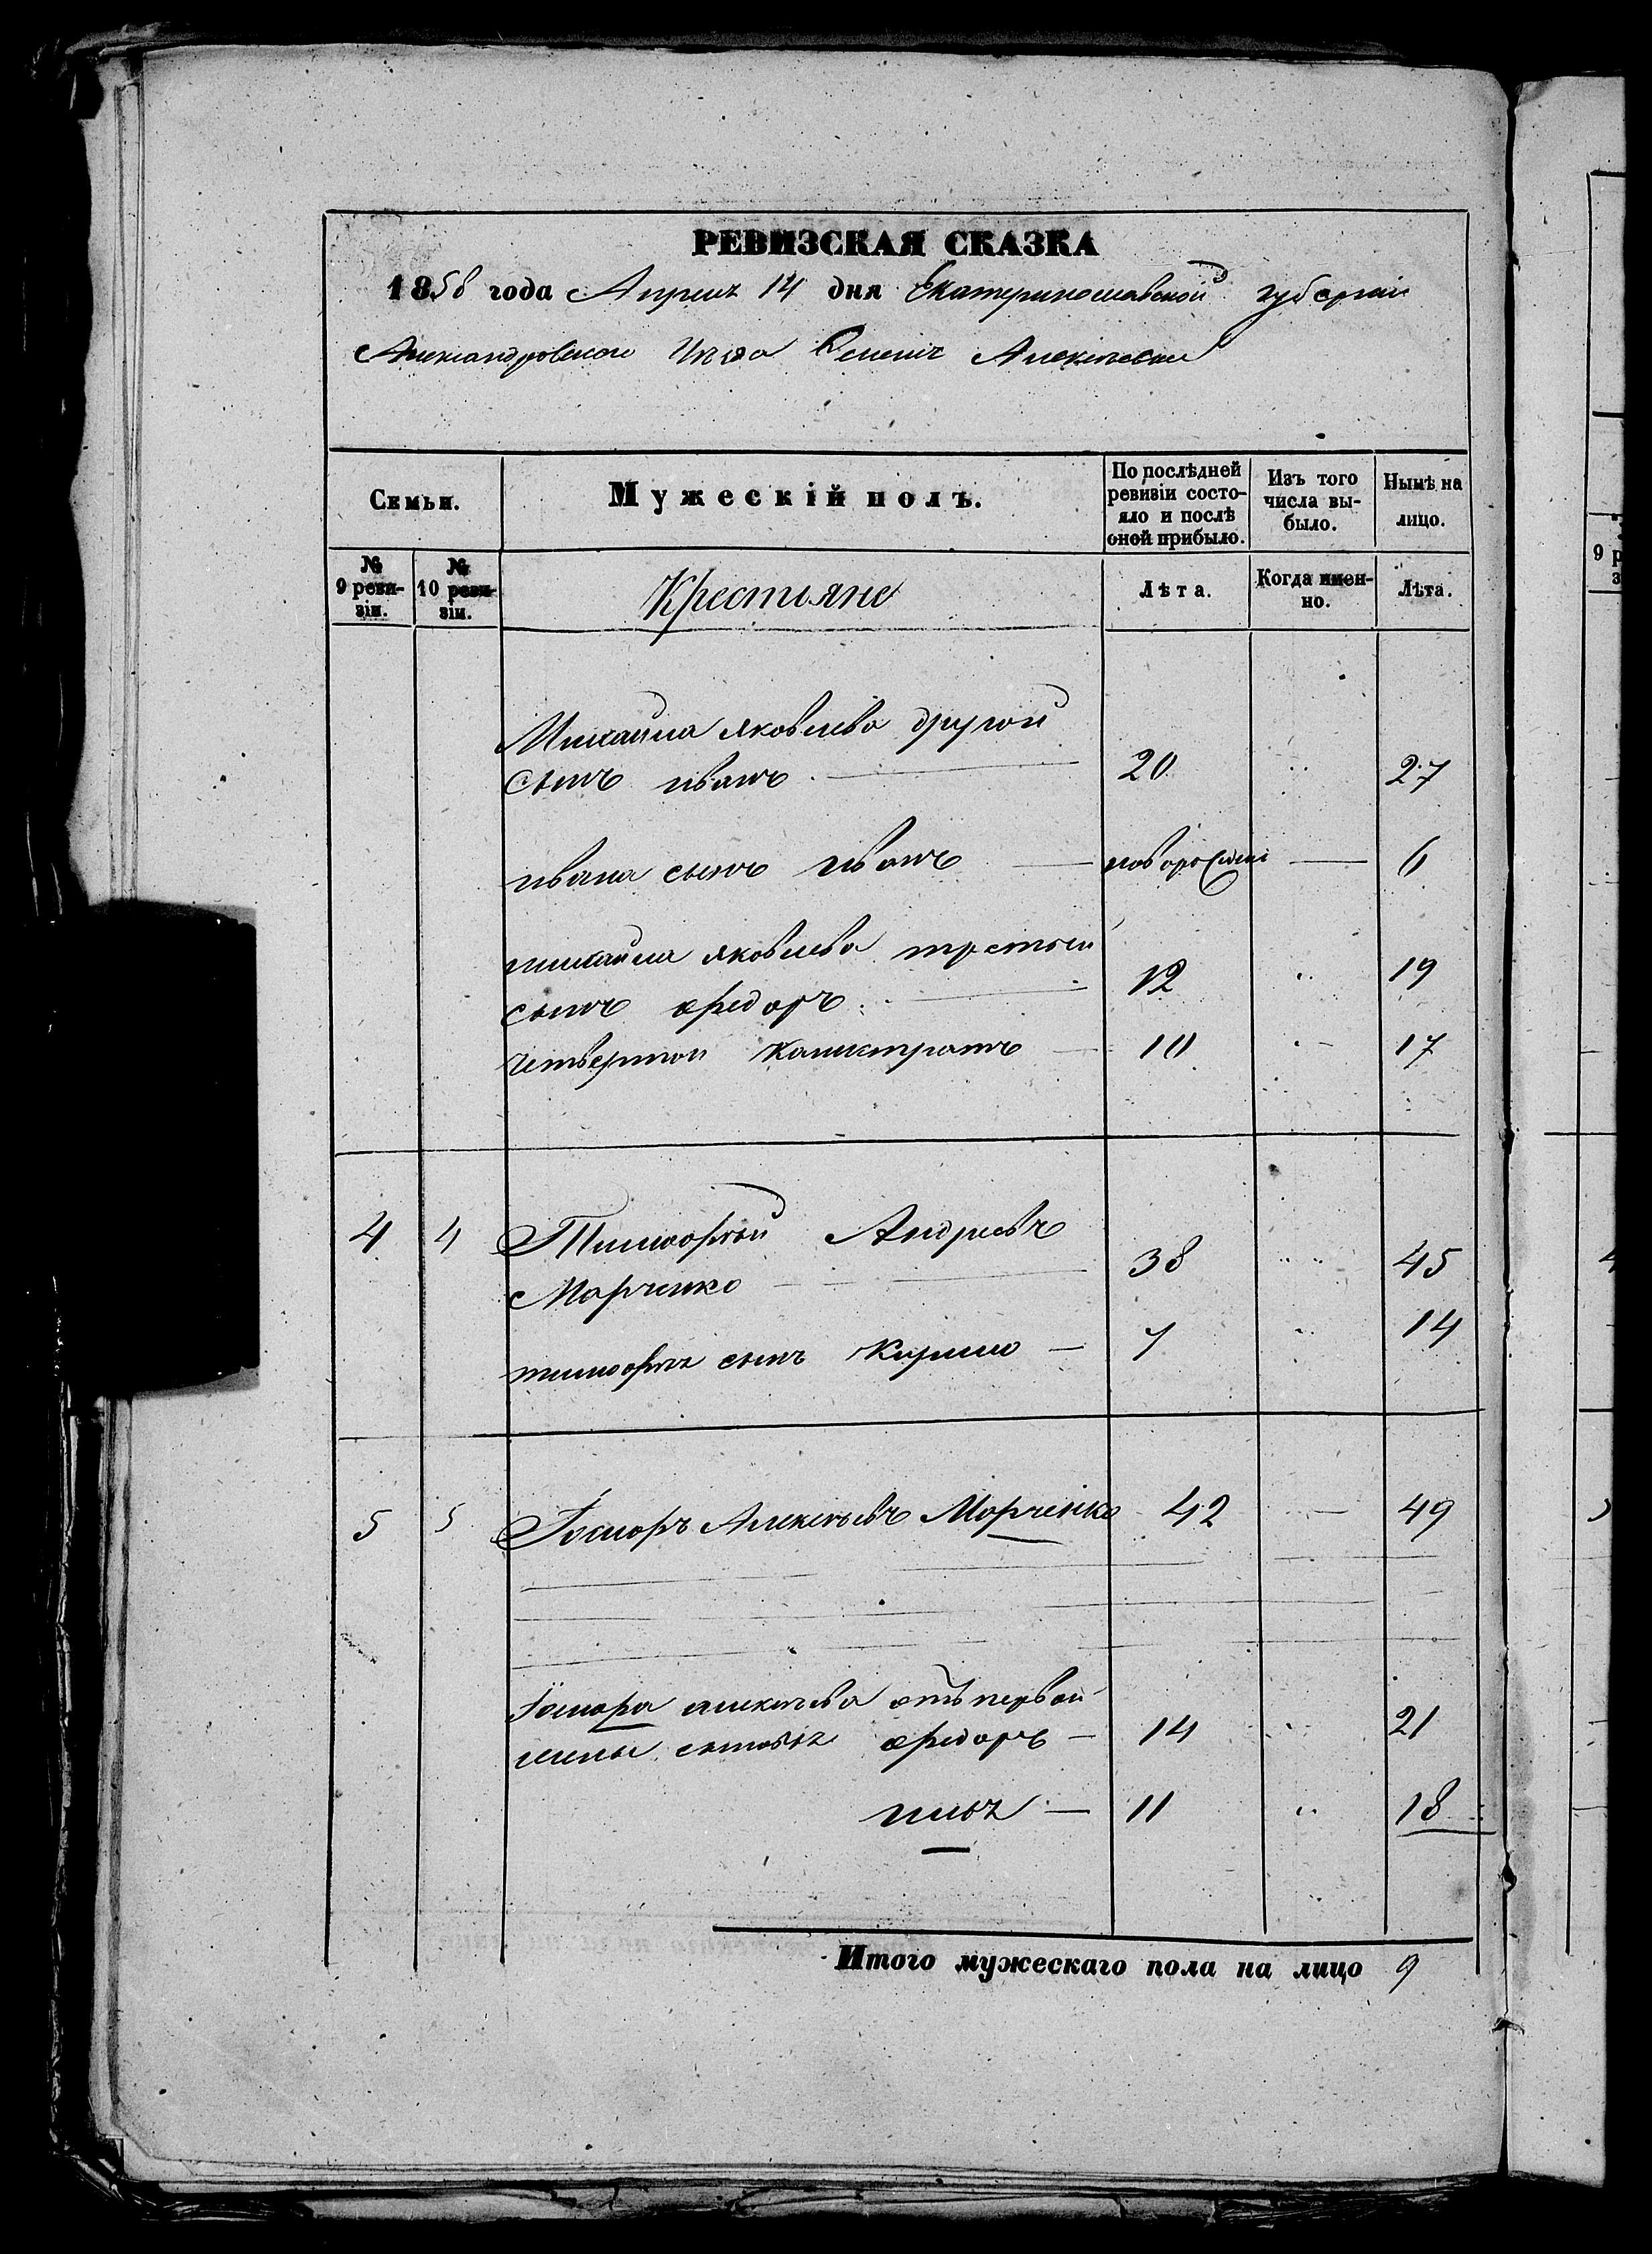 РЕВИЗСКАЯ СКАЗКА
1858 года Апреля 14 дня Екатеринославской губернии
Александровского Уѣзда Алексѣевки
Семьи.
Мужескій полъ.
По послѣдней ревизіи состояло и послѣ оной прибыло.
Изъ того числа выбыло.
Нынѣ на лицо.
№ 9 ревизіи.
№ 10 ревизіи.
Крестьяне
Лѣта.
Когда именно.
Лѣта.
Михайла Яковлева другой
сынъ иванъ 20 27
ивана сынъ иванъ новорожденъ 6
михайла яковлева третьий
сынъ федоръ 12 19
четвертой Калистратъ 10 17
4 4 Тимофей Андреевъ
Марченко 38 45
тимофея сынъ Кирило 7 14
5 5 Алексѣевъ Марченко 42 49
алексѣева отъ первой
жены сыновья федоръ 14 21
илья 11 18
Итого мужескаго пола на лицо 9
9 р
4
5